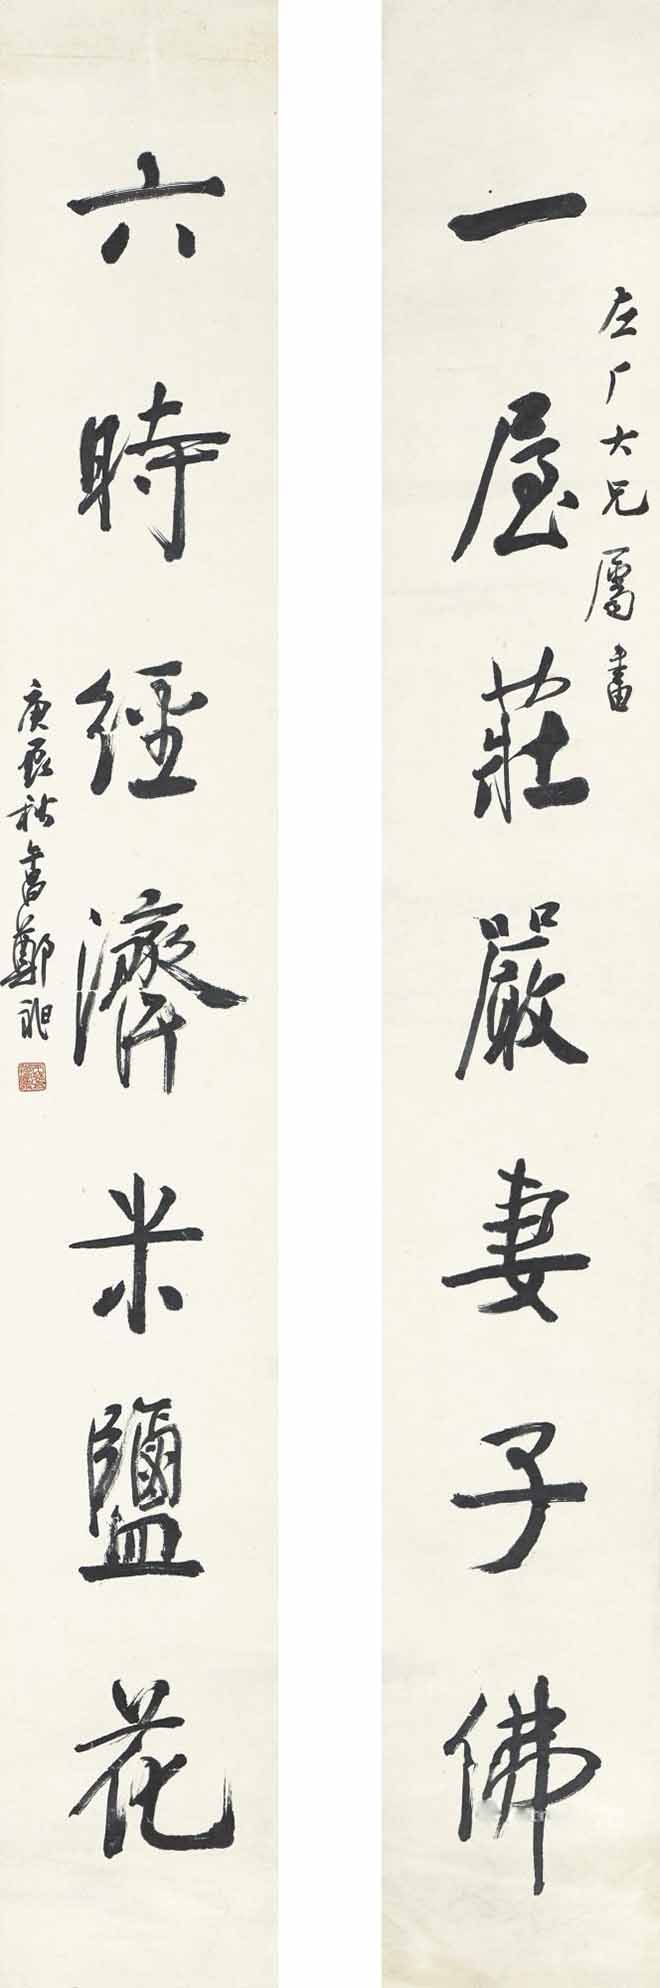 一屋莊嚴妻子佛
左厂大兄屬書
六時經濟米鹽花
庚辰秋書鄭昶